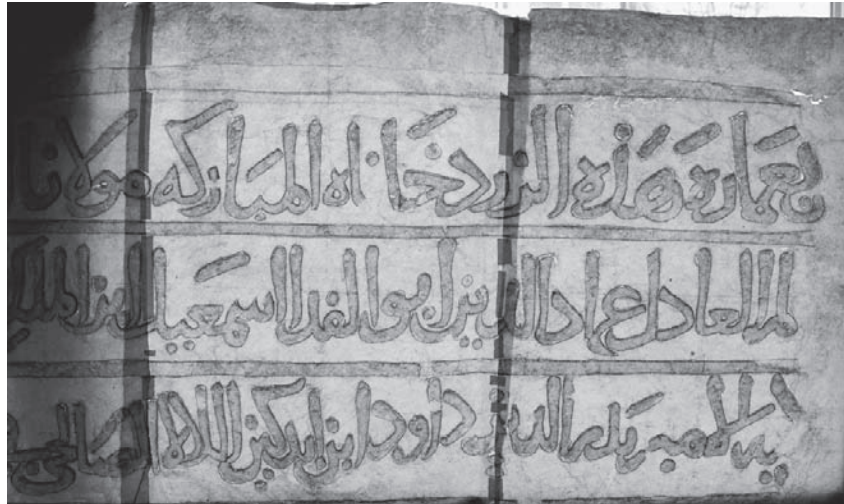 بعمارة هذه الزردخاناه المباركه مولانا
العادل عماد الدين ابو الفدا اسمعيل ابن الملك
بدر الدين داود ابن ايدكين الصالحي